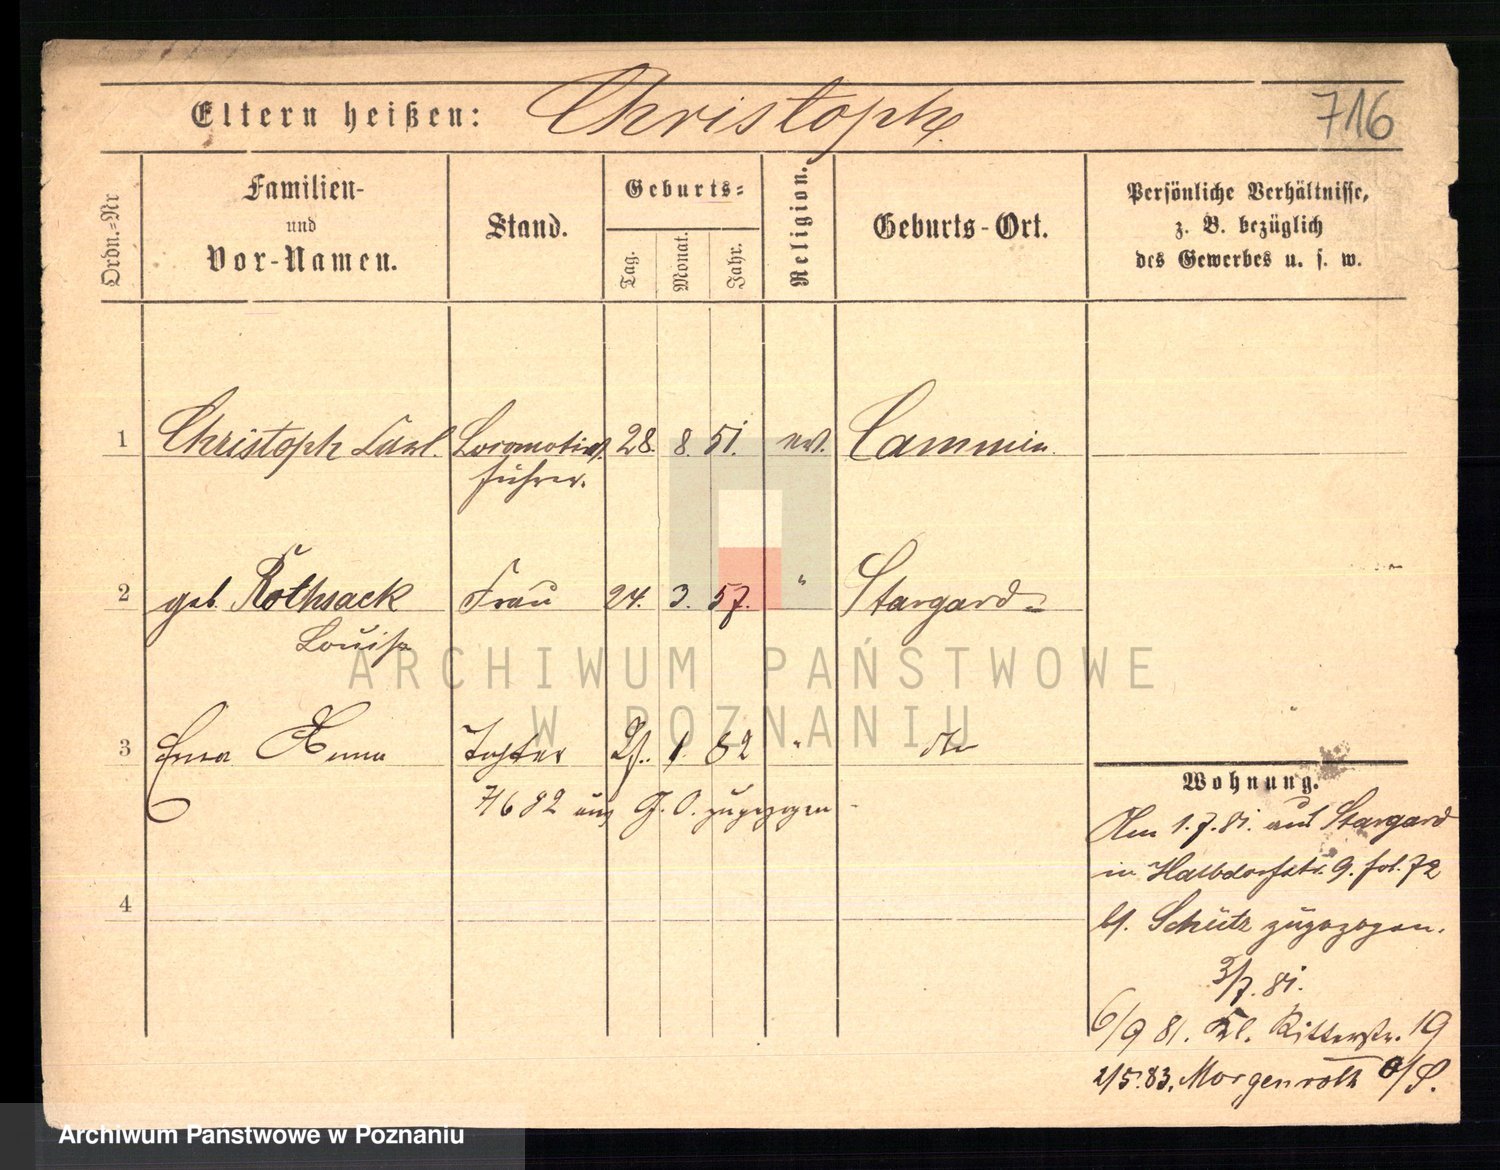 Eltern heißen: Christoph
716
Ordn.-Nr
Familien-
und
Vor-Namen.
Stand.
Geburts-
Tag.
Monat.
Jahr.
Religion.
Geburts-Ort.
Persönliche Verhältnisse,
z. B. bezüglich
des Gewerbes u. s. w.
1 Christoph Carl. Locomotiv 28. 8. 51. ev. Cammin
führer.
2 geb. Rothsack Frau 24. 3. 57. " Stargard
Louise
3 Erna Anna Tochter 1 82 "
7/6 82 aus G. O. zugezogen
4
Wohnung.
Am 1.7.81. aus Stargard
in Halbdorfstr. 9. fol. 72
bei Schütz zugezogen.
3/7. 81.
6/9 81. Kl. Ritterstr. 19
2/5.83. Morgenroth O/S.
ARCHIWUM PAŃSTWOWE
W POZNANIU
Archiwum Państwowe w Poznaniu